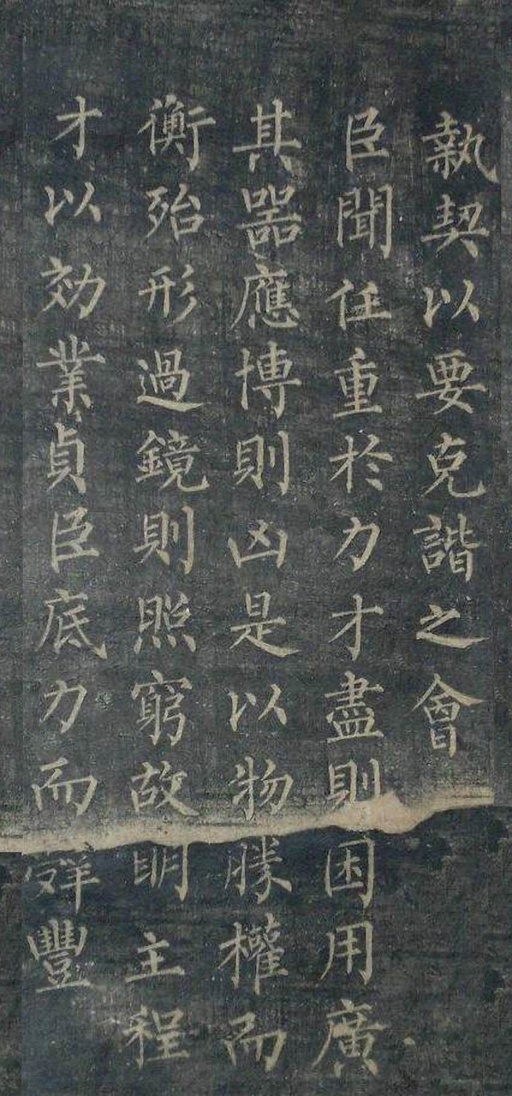 執契以要克諧之會
臣聞任重於力才盡則困用廣
其噐應博則凶是以物勝權而
衡殆形過鏡則照窮故明主程
才以効業貞臣底力而辭豐